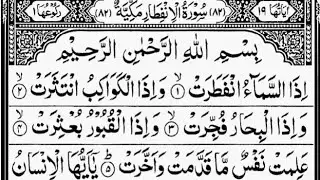 اٰیاتها ١٩ (٨٢) سُوْرَةُ الْاِنْفِطَارِ مَكِّيَّةٌ (٨٢) رکوعها ١
بِسْمِ اللّٰهِ الرَّحْمٰنِ الرَّحِيْمِ
اِذَا السَّمَآءُ انْفَطَرَتْ ۙ﴿١﴾ وَاِذَا الْكَوَاكِبُ انْتَثَرَتْ ۙ﴿٢﴾
وَاِذَا الْبِحَارُ فُجِّرَتْ ۙ﴿٣﴾ وَاِذَا الْقُبُوْرُ بُعْثِرَتْ ۙ﴿٤﴾
عَلِمَتْ نَفْسٌ مَّا قَدَّمَتْ وَاَخَّرَتْ ؕ﴿٥﴾ يٰۤاَيُّهَا الْاِنْسَانُ